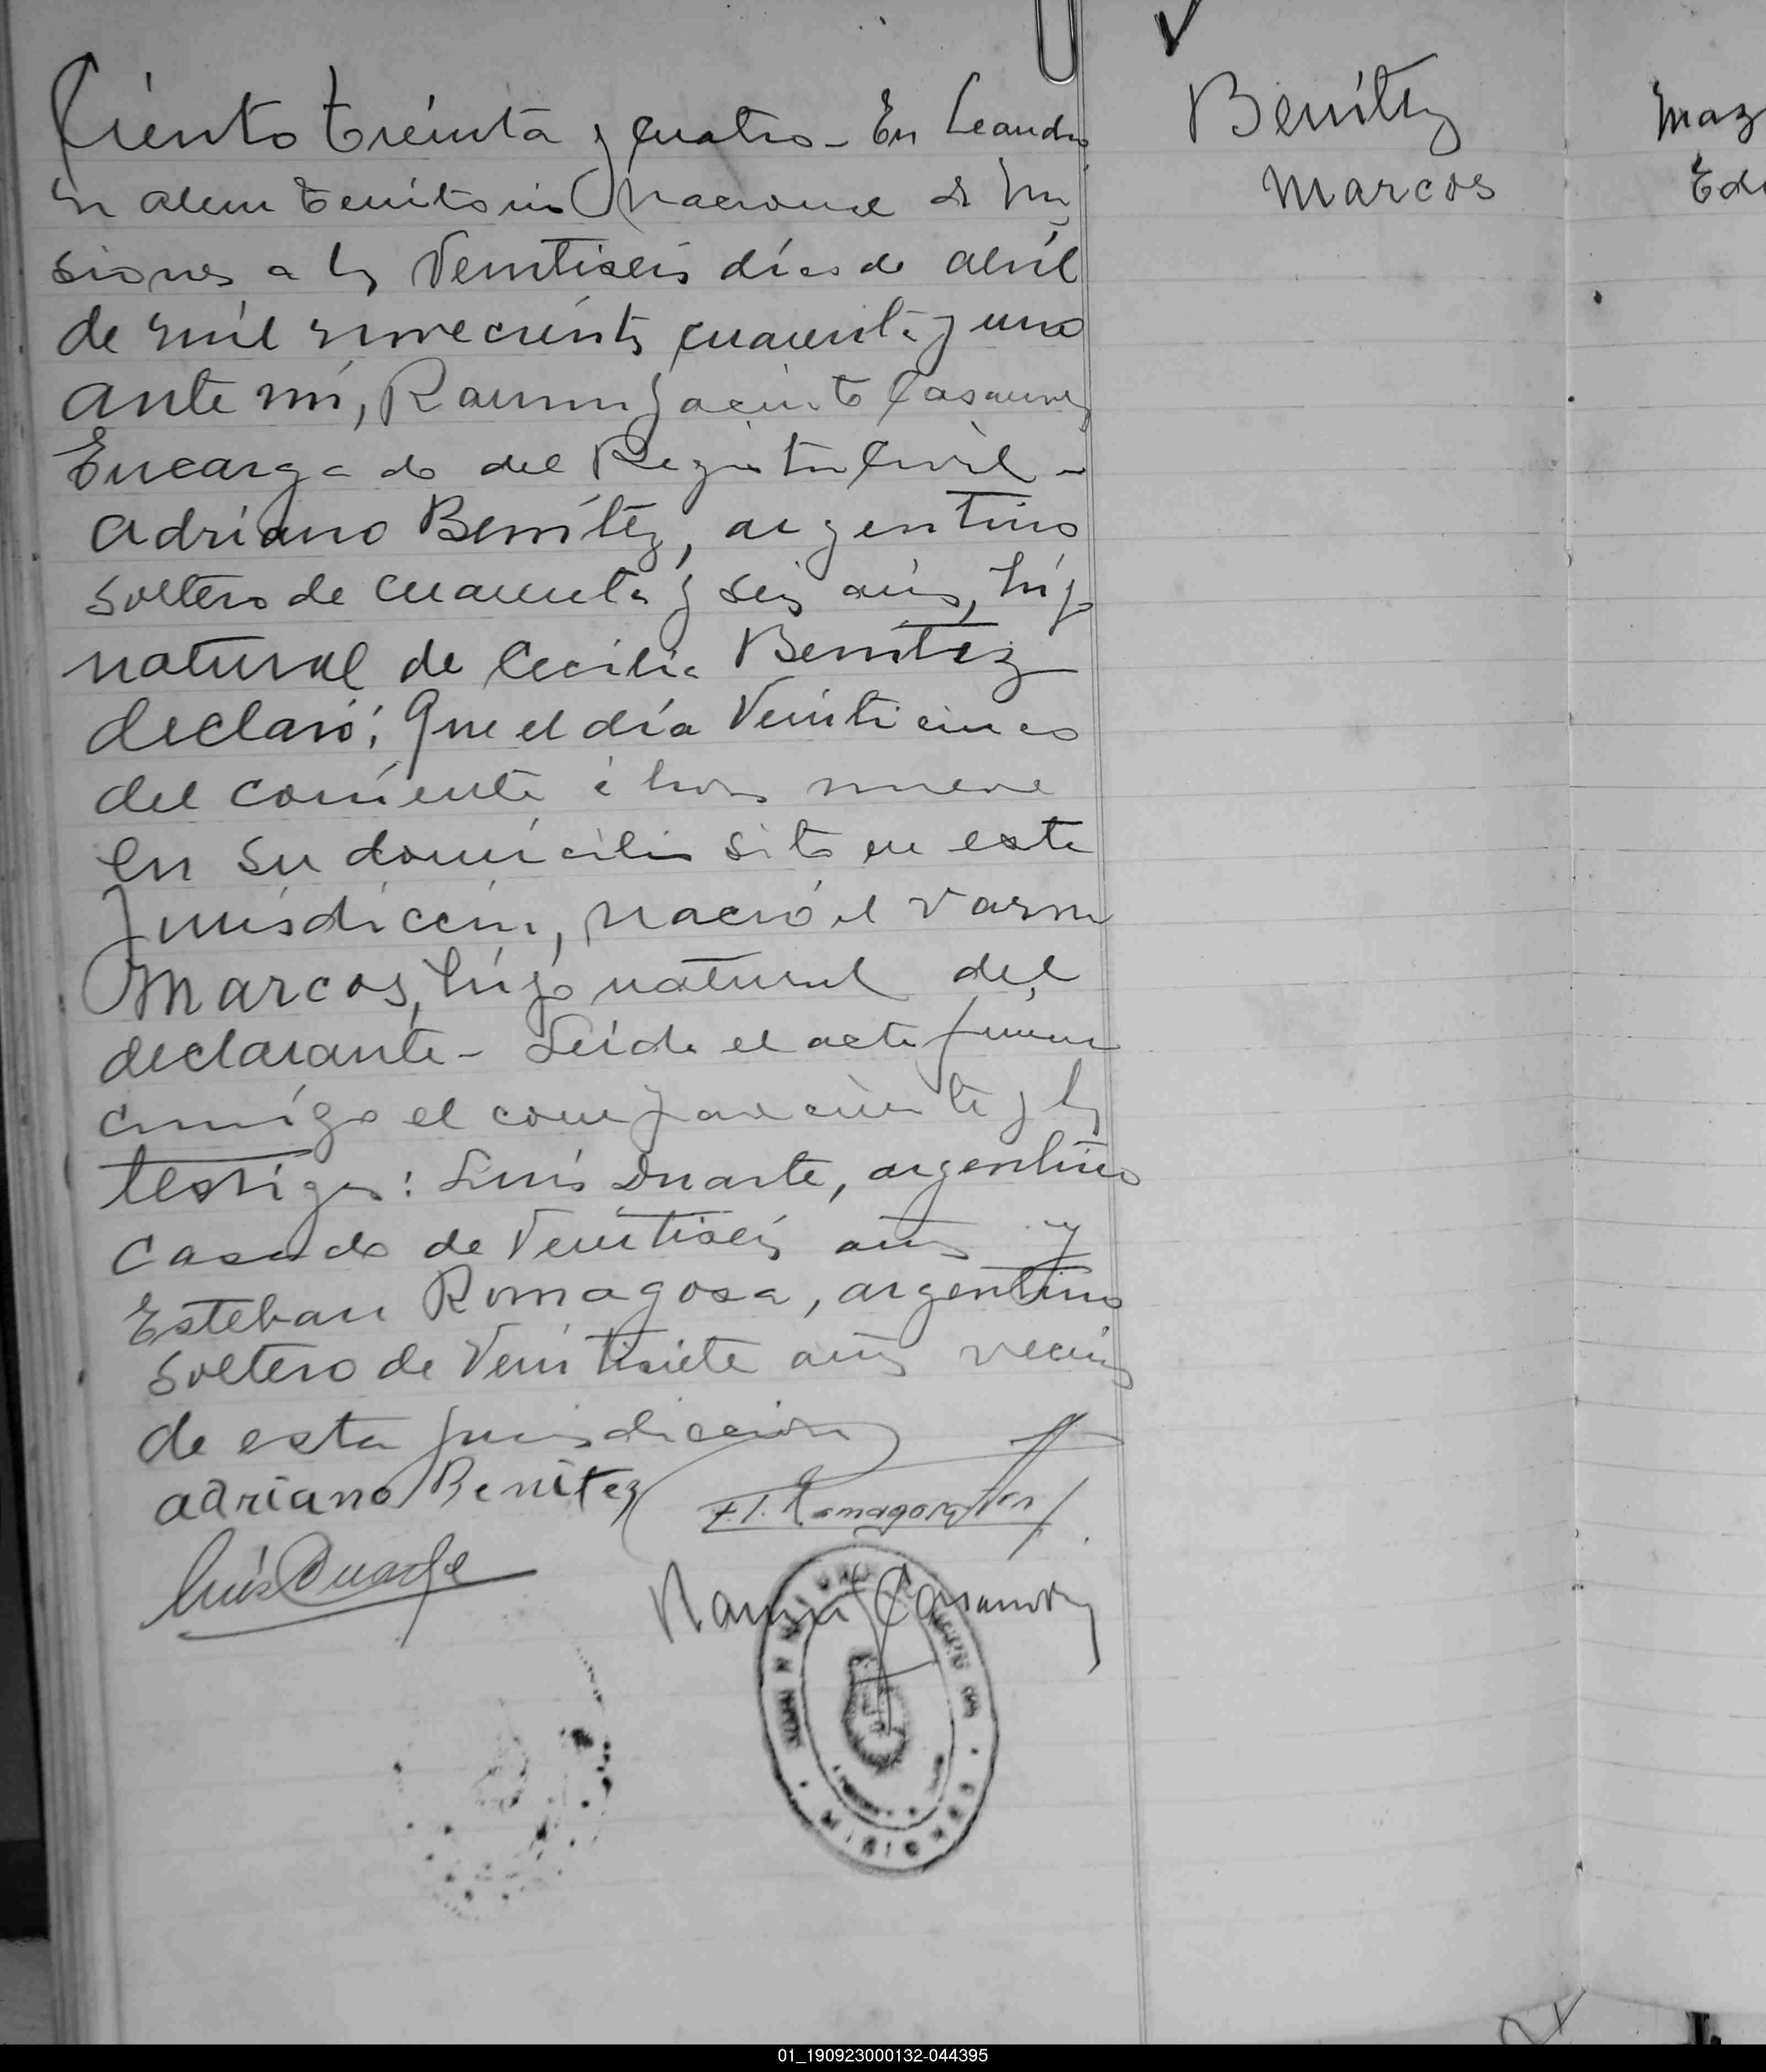 Ciento treinta y cuatro - En Leandro
N alem Territorio Nacional de Mi
siones a los Veintiseis días de abril
de mil novecientos cuarenta y uno
ante mi, Ramon Jacinto Casanova
Encargado del Registro Civil -
Adriano Benítez, argentino
soltero de cuarenta y seis años, hijo
natural de Cecilia Benítez
declaró: Que el día Veinticinco
del corriente á horas nueve
en su domicilio sito en esta
Jurisdiccion, nació el varon
Marcos, hijo natural del
declarante - Leida el acta firman
conmigo el compareciente y los
testigos: Luis Duarte, argentino
casado de Veintiseis años y
Esteban Romagosa, argentino
soltero de Veintisiete años vecinos
de esta jurisdiccion
adriano Benitez
Luis Duarte
Ramon Casanova
MISIONES
Benítez
Marcos
Maz
01_190923000132-044395